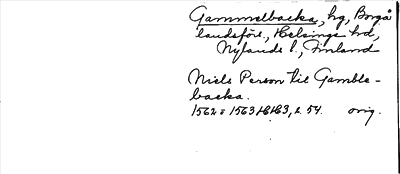 Gammelbacka, hg, Borgå
landsförs., Helsinge hd,
Nylands l., Finland
Niels Person til Gamble-
backa.
1562 1563 54. orig.